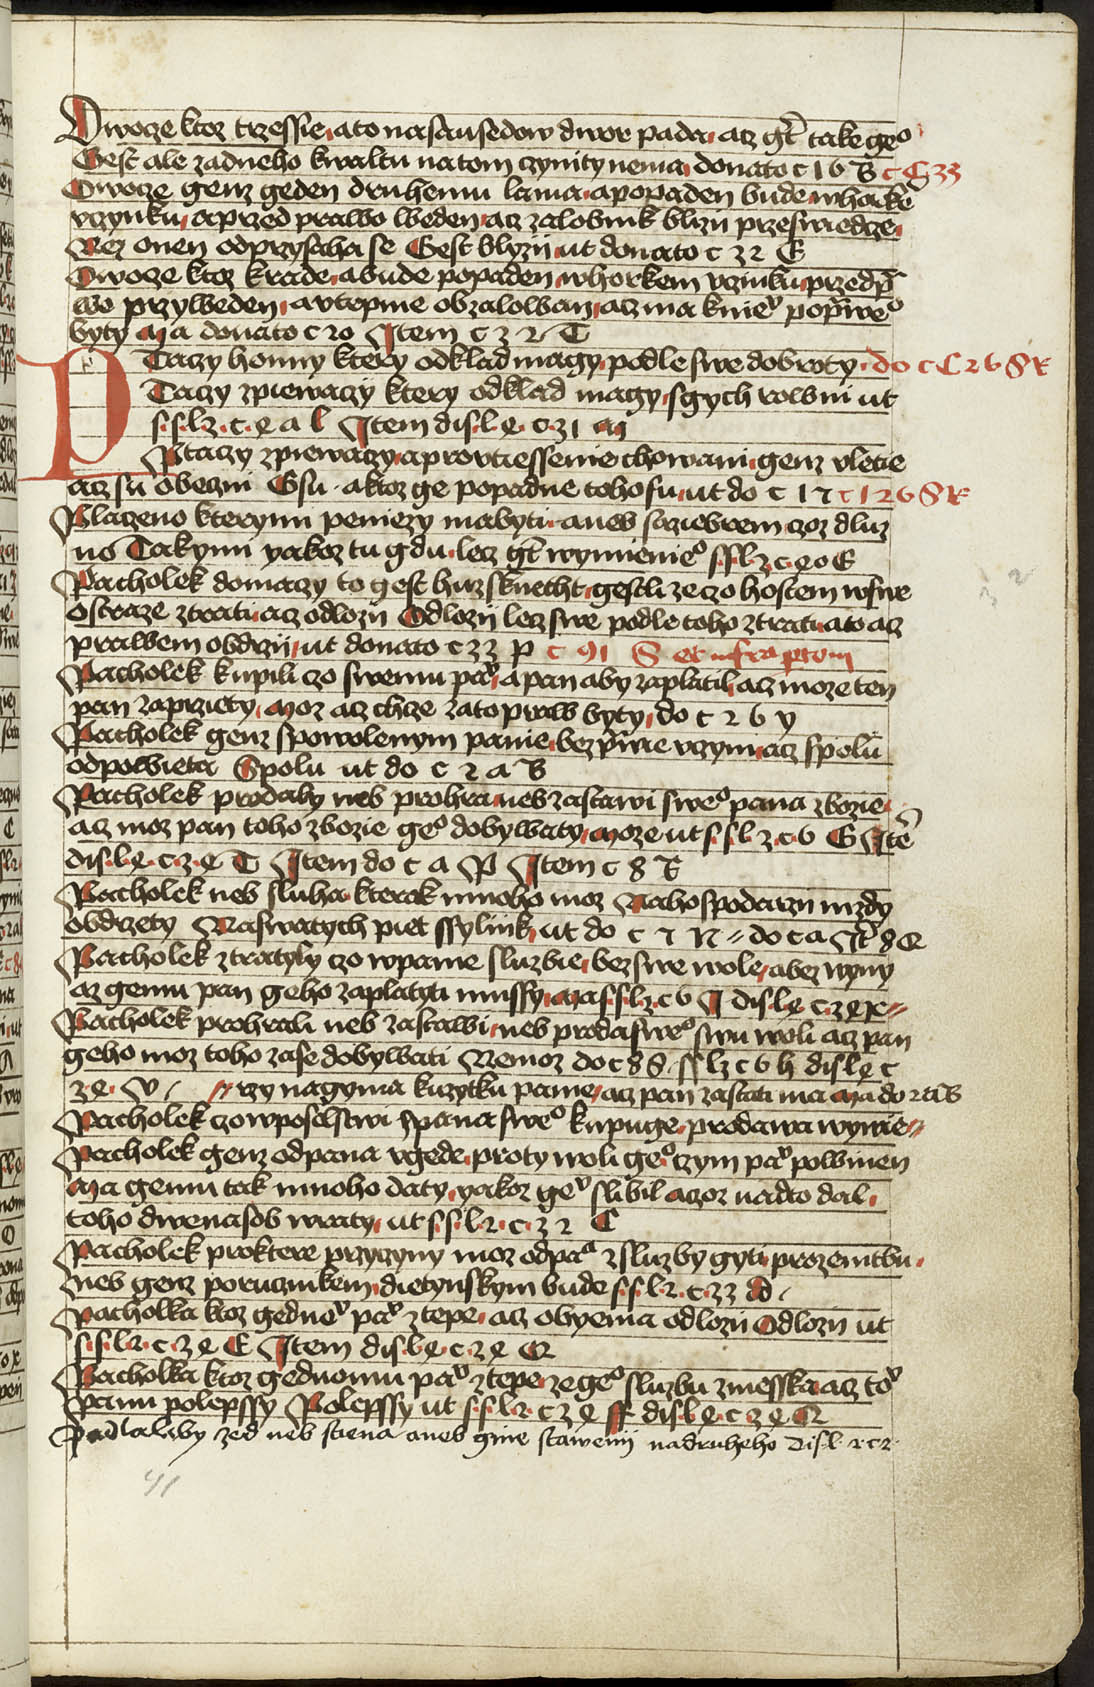 Owocze ktoz trzessie a to na sausedow dwor pada acz gt take geo
Gest ale zadneho kwaltu na tom czynity nema donato c 16 B c C 33
Owocze genz geden druhemu lama a popaden bude w horke
vczynku a przed prawo weden acz zalobnik blizii przeswiedcze
Nez onen odprzysaha se Gest blyzii ut donato c 32 E
Owocze ktoz krade a bude popaden w horkem vczinku przed p
wo przyweden a vtepme obzalowan acz ma knie pop
byty Ma donato c 20 Item c 3 2 T
P Taczy honny ktery odklad magy podle swe dobroty do c C 26 S R
Taczy zpiewaczy ktery odklad magy sgych rowni ut
s s l 2 c e a l Item dis l e c 31 m
Ptaczy zpiewaczy a pro vtiessenie chowani genz vletie
acz su obeczni Gsu a ktoz ge popadne toho su ut do c 17 c 126 S R
Placzeno kterymi peniezy ma byti aneb strziebrem czoz dluz
no Takymi yakoz tu gdu lecz gt wymienieo s s l 2 c e o E
Pacholek domaczy to gest huzsknecht gestli ze czo hostem w swe
ostraze ztrati acz odlozii Odlozii lecz swe podle toho ztratu a to acz
prawem obdrzii ut donato c 33 P c 91 S et infra ptom
Pacholek kupili czo swemu pa a pan aby zaplatil acz moze ten
pan zaprziety Moz acz chcze za to praw byty do c 2 6 y
Pacholek genz s powolenym panie bez pwie vczyni acz spolu
odpowieta Spolu ut do c 2 a B
Pacholek prodalby neb prohra neb zastawi sweo pana zbozie
acz moz pan toho zbozie geo dobywaty Moze ut s s l 2 c 6 G Ite
dis l e c 2 e T Item do c a P Item c 8 R
Pacholek neb sluha kterak mnoho moz Na hospodarzi mzdy
obdrzety Na swatych piet ssylink ut do c 7 N do c a It 8 Q
Pacholek ztratyly czo w panie sluzbie bez swe wole a bez wyny
acz gemu pan geho zaplatyti mussy Ma s s l 2 c 6 I dis l e c 2 e x
Pacholek prohrali neb zastawi neb proda sweo swu woli acz pan
geho moz toho zase dobywati Nemoz do c 8 S s s l 2 c 6 h dis l e c
2 e V wzy nagyma kuzytku panie acz pan zastati ma Ma do 2 a B
Pacholek czo w poselstwi zpana sweo kupuge prodawa wywie
Pacholek genz od pana vgede proty woli geo czym pa powinen
Ma gemu tak mnoho daty yakoz ge slibil a czoz nadto dal
toho dwenasob wraty ut s s l 2 c 3 2 C
Pacholek proktere przyczyny moz od pa z sluzby gyti pro zenitbu
neb genz porucznikem dietynskym bude s s l 2 c 33 d
Pacholka ktoz gedno pa ztepe acz obyema odlozii Odlozii ut
s s l 2 c 2 e E Item dis l e c 2 e Q
Pacholka ktoz gednomu pa ztepe ze geo sluzbu zmesska acz to
Panu polepssy Polepssy ut s s l 2 c 2 e ff dis l e c 2 e Q
Padlalby zed neb stiena aneb gine stawenij na druheho dis l 2 c 2
41